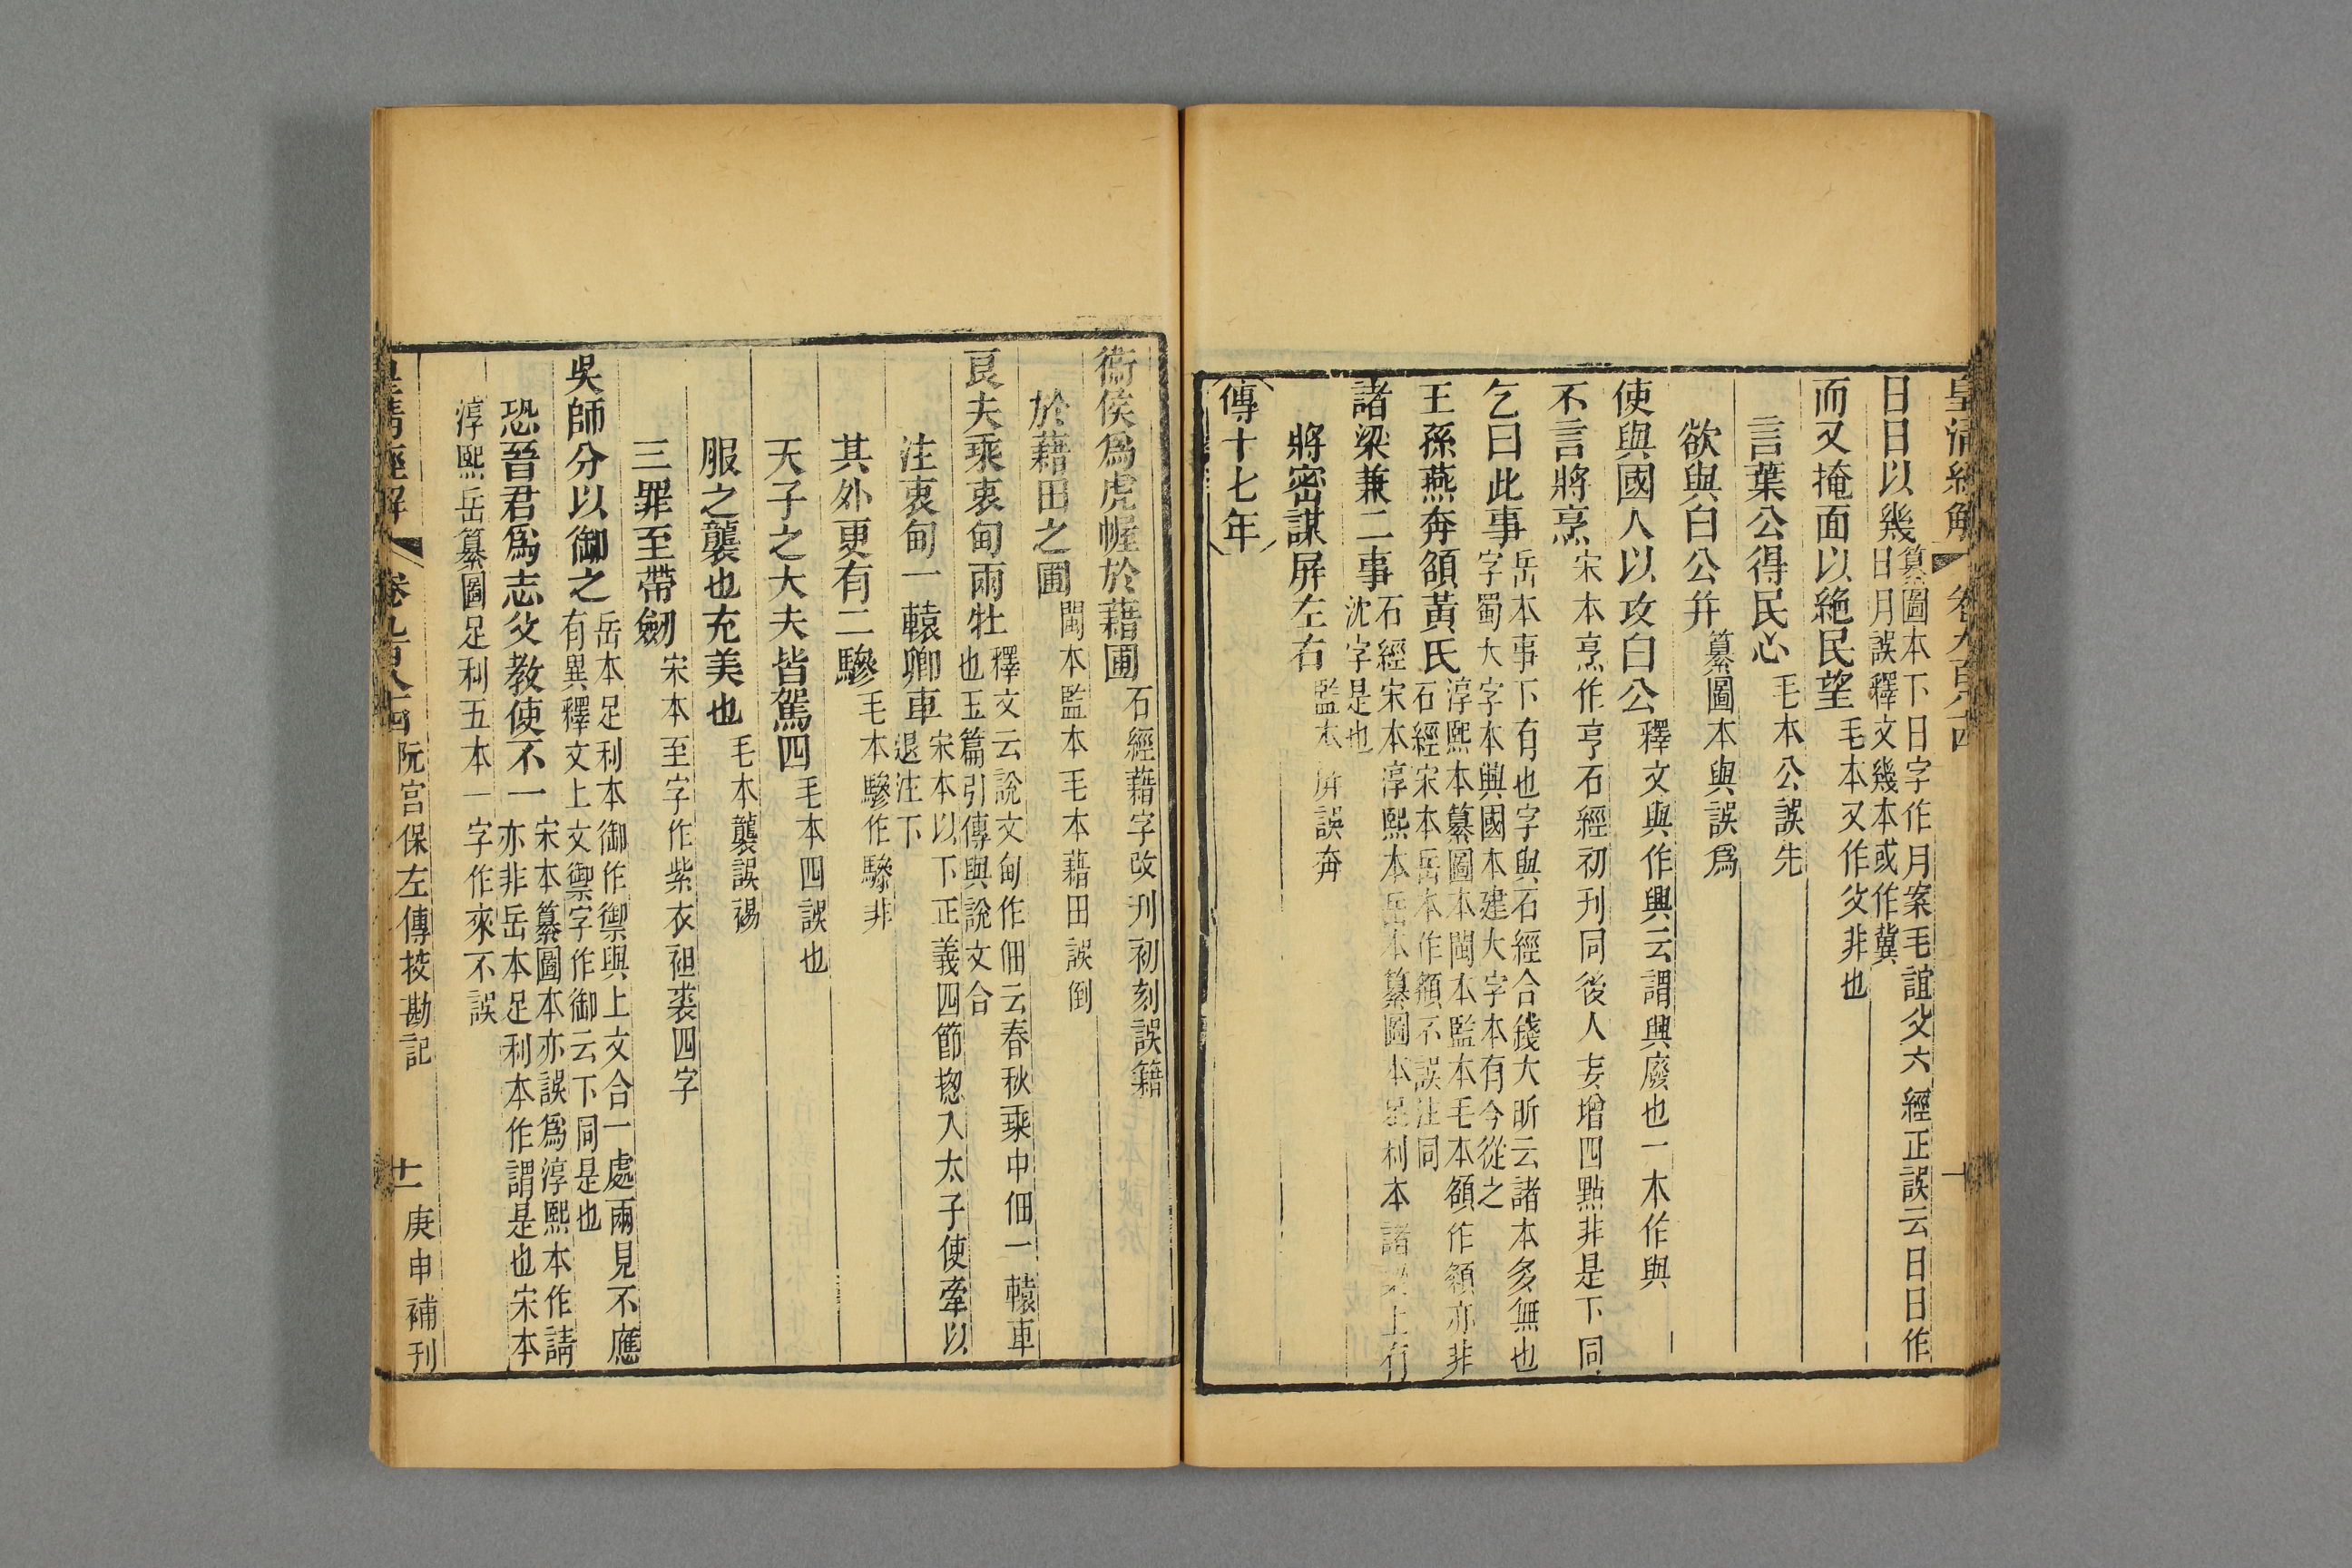 皇清經解 卷九百八十四 十
日日以幾 纂圖本下日字作月案毛誼父六經正誤云日日作
日月誤釋文幾本或作冀
而又掩面以絶民望 毛本又作父非也
言葉公得民心 毛本公誤先
欲與白公幷 纂圖本與誤爲
使與國人以攻白公 釋文與作興云謂興廢也一本作與
不言將烹 宋本烹作亨石經初刊同後人妄增四點非是下同
乞曰此事 岳本事下有也字與石經合錢大昕云諸本多無也
字蜀大字本興國本建大字本有今從之
王孫燕奔頟黃氏 淳熙本纂圖本閩本監本毛本頟作額亦非
石經宋本岳本作頯不誤注同
諸梁兼二事 石經宋本淳熙本岳本纂圖本足利本諸梁上有
沈字是也
將密謀屏左右 監本屏誤奔
傳十七年
衞侯爲虎幄於藉圃 石經藉字改刋初刻誤籍
於藉田之圃 閩本監本毛本藉田誤倒
良夫乘衷甸兩牡 釋文云說文甸作佃云春秋乘中佃一轅車
也玉篇引傳與說文合
注衷甸一轅卿車 宋本以下正義四節揔入太子使牽以
退注下
其外更有二驂 毛本驂作驂非
天子之大夫皆駕四 毛本四誤也
服之襲也充美也 毛本襲誤裼
三罪至帶劒 宋本至字作紫衣袒裘四字
吳師分以御之 岳本足利本御作禦與上文合一處兩見不應
有異釋文上文禦字作御云下同是也
恐晉君爲志父教使不一 宋本纂圖本亦誤爲淳熙本作請
亦非岳本足利本作謂是也宋本
淳熙岳纂圖足利五本一字作來不誤
皇清經解 卷九百八十四 阮宮保左傳挍勘記 十一 庚申補刋